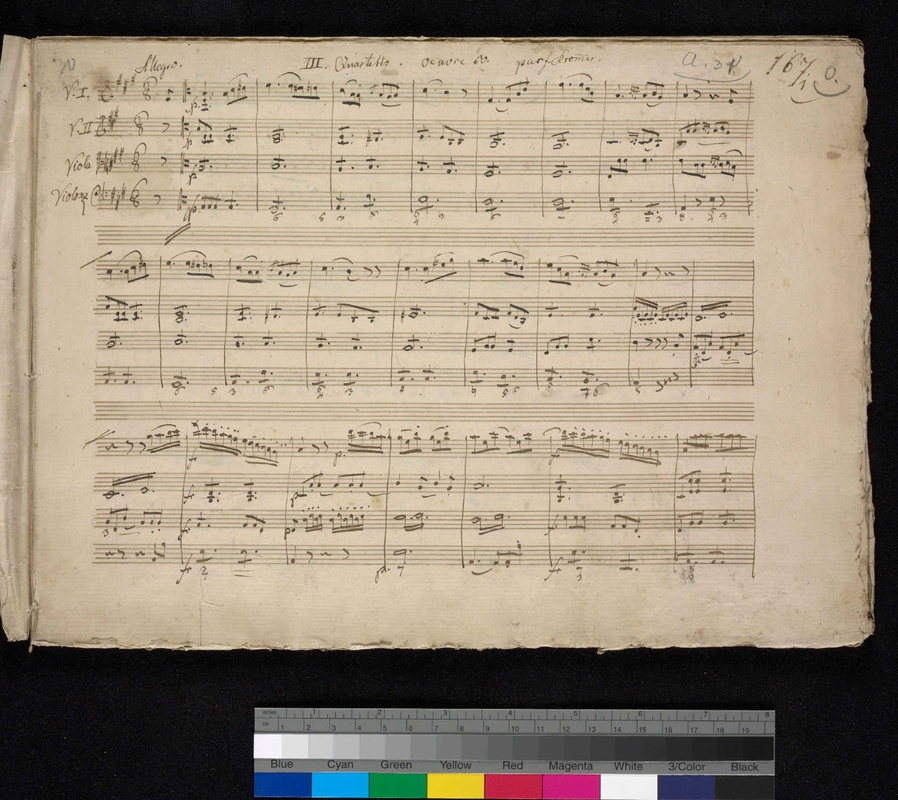 Allegro. III. Quartetto. Oeuvre 60. par F. Kromer. 167.
V. I.
V. II
Viola
Violonz
inches 1 2 3 4 5 6 7 8
cm 1 2 3 4 5 6 7 8 9 10 11 12 13 14 15 16 17 18 19
Blue Cyan Green Yellow Red Magenta White 3/Color Black